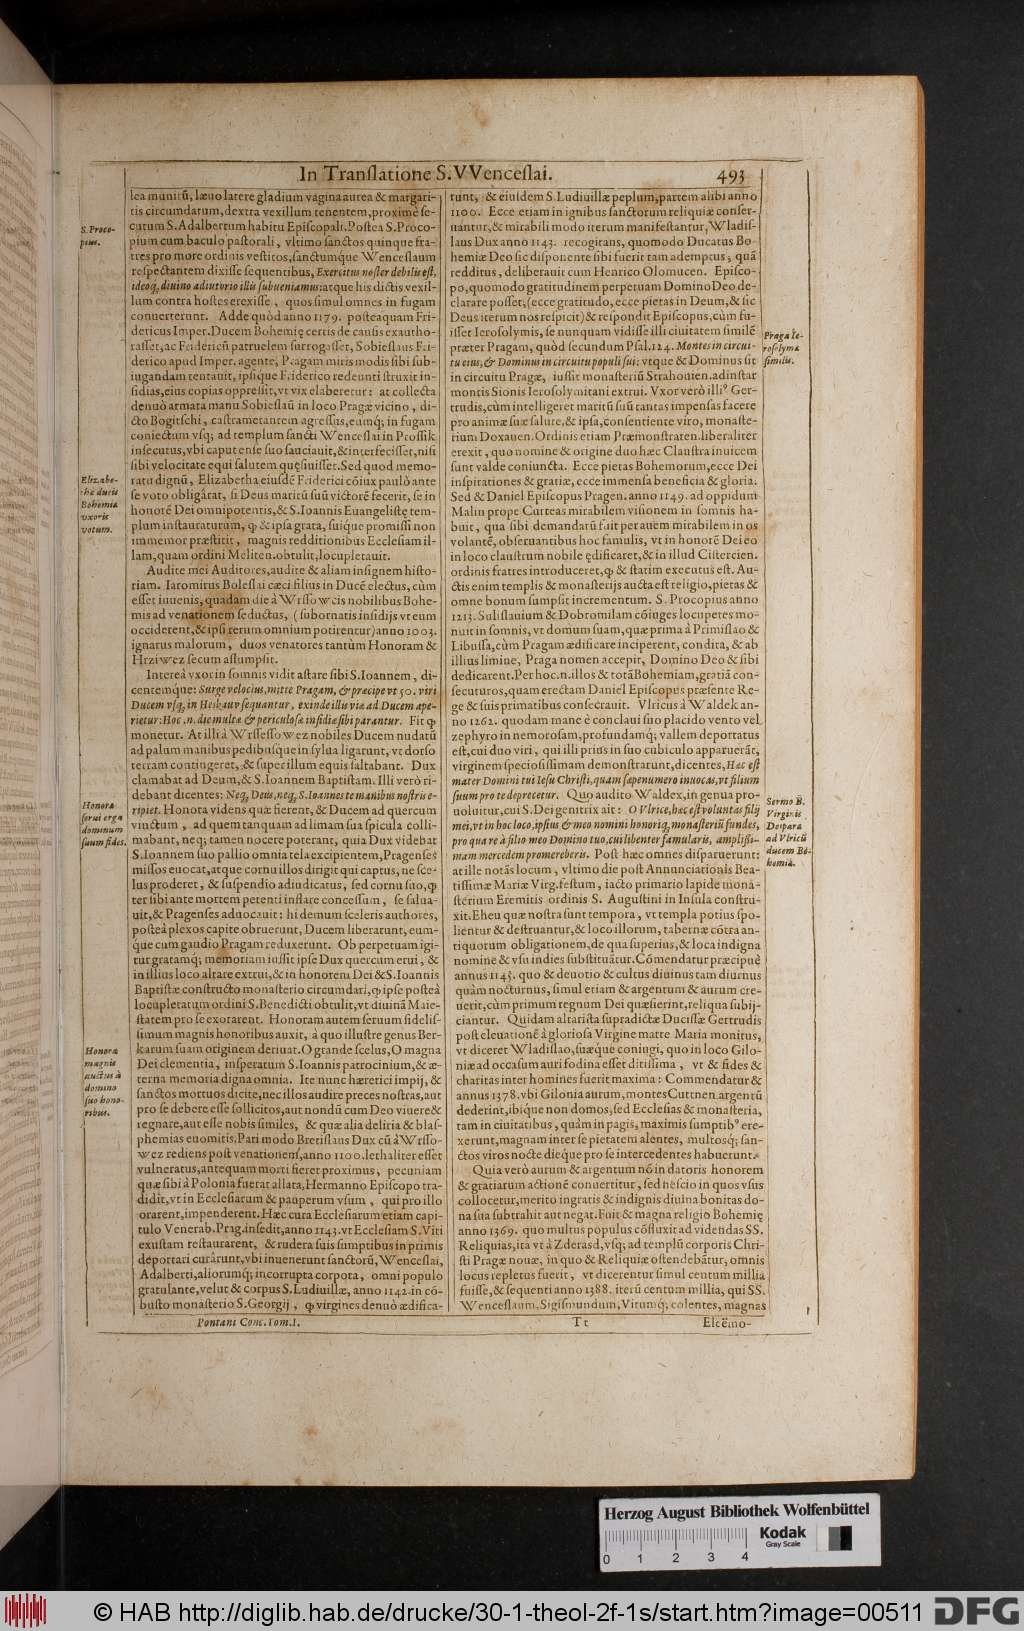 In Translatione S. VVenceslai. 493
lea munitũ, læuo latere gladium vagina aurea & margari-
tis circumdatum, dextra vexillum tenentem, proximè se-
cutum S. Adalbertum habitu Episcopali. Postea S. Proco-
pium cum baculo pastorali, vltimo sanctos quinque fra-
tres pro more ordinis vestitos, sanctumque Wenceslaum
respectantem dixisse sequentibus, Exercitus noster debilis est,
ideoq; diuino adiutorio illis subueniamus: atque his dictis vexil-
lum contra hostes erexisse, quo simul omnes in fugam
conuerterunt. Adde quòd anno 1179. posteaquam Fri-
dericus Imper. Ducem Bohemię certis de causis exautho-
rasset, ac Fridericũ patruelem surrogasset, Sobieslaus Fri-
derico apud Imper. agente, Pragam miris modis sibi sub-
iugandam tentauit, ipsique Friderico redeunti struxit in-
sidias, eius copias oppressit, vt vix elaberetur: at collecta
denuò armata manu Sobieslaũ in loco Pragæ vicino, di-
cto Bogitschi, castrametantem agressus, eumq; in fugam
coniectum vsq; ad templum sancti Wenceslai in Prossik
insecutus, vbi caput ense suo sauciauit, & interfecisset, nisi
sibi velocitate equi salutem quęsiuisset. Sed quod memo-
ratu dignũ, Elizabetha eiusdẽ Friderici cõiux paulò ante
se voto obligârat, si Deus maritũ suũ victorẽ fecerit, se in
honorẽ Dei omnipotentis, & S. Ioannis Euangelistę tem-
plum instauraturum, ꝙ & ipsa grata, suique promissi non
immemor præstitit, magnis redditionibus Ecclesiam il-
lam, quam ordini Meliten. obtulit, locupletauit.
Audite mei Auditores, audite & aliam insignem histo-
riam. Iaromirus Boleslai cæci filius in Ducẽ electus, cùm
esset iuuenis, quadam die à Wrssowcis nobilibus Bohe-
mis ad venationem seductus, (subornatis insidijs vt eum
occiderent, & ipsi rerum omnium potirentur) anno 1003.
ignarus malorum, duos venatores tantùm Honoram &
Hrziwez secum assumpsit.
Intereà vxor in somnis vidit astare sibi S. Ioannem, di-
centemque: Surge velocius, mitte Pragam, & præcipe vt 50. viri
Ducem vsq; in Heskauv sequantur, exinde illis via ad Ducem ape-
rietur: Hoc .n. die multæ & periculosæ insidiæ sibi parantur. Fit ꝙ
monetur. At illi à Wrssessowez nobiles Ducem nudatũ
ad palum manibus pedibusque in sylua ligarunt, vt dorso
terram contingeret, & super illum equis saltabant. Dux
clamabat ad Deum, & S. Ioannem Baptistam. Illi verò ri-
debant dicentes: Neq; Deus, neq; S. Ioannes te manibus nostris e-
ripiet. Honora videns quæ fierent, & Ducem ad quercum
vinctum, ad quem tanquam ad limam sua spicula colli-
mabant, neq; tamen nocere poterant, quia Dux videbat
S. Ioannem suo pallio omnia tela excipientem, Pragenses
missos euocat, atque cornu illos dirigit qui captus, ne sce-
lus proderet, & suspendio adiudicatus, sed cornu suo, ꝙ
ter sibi ante mortem petenti inflare concessum, se salua-
uit, & Pragenses aduocauit: hi demum sceleris authores,
posteà plexos capite obruerunt, Ducem liberatunt, eum-
que cum gaudio Pragam reduxerunt. Ob perpetuam igi-
tur gratamq; memoriam iussit ipse Dux quercum erui, &
in illius loco altare extrui, & in honorem Dei & S. Ioannis
Baptistæ constructo monasterio circumdari, ꝙ ipse posteà
locupletatum ordini S. Benedicti obtulit, vt diuinã Maie-
statem pro se exorarent. Honoram autem seruum fidelis-
simum magnis honoribus auxit, à quo illustre genus Ber-
karum suam originem deriuat. O grande scelus, O magna
Dei clementia, insperatum S. Ioannis patrocinium, & æ-
terna memoria digna omnia. Ite nunc hæretici impij, &
sanctos mortuos dicite, nec illos audire preces nostras, aut
pro se debere esse sollicitos, aut nondũ cum Deo viuere &
regnare, aut esse nobis similes, & quæ alia deliria & blas-
phemias euomitis. Pari modo Bretislaus Dux cũ à Wrsso-
wez rediens post venationem, anno 1100. lethaliter esset
vulneratus, antequam morti fieret proximus, pecuniam
quæ sibi à Polonia fuerat allata, Hermanno Episcopo tra-
didit, vt in Ecclesiarum & pauperum vsum, qui pro illo
orarent, impenderent. Hæc cura Ecclesiarum etiam capi-
tulo Venerab. Prag. insedit, anno 1143. vt Ecclesiam S. Viti
exustam restaurarent, & rudera suis sumptibus in primis
deportari curârunt, vbi inuenerunt sanctorũ, Wenceslai,
Adalberti, aliorumq; incorrupta corpora, omni populo
gratulante, velut & corpus S. Ludiuillæ, anno 1142. in cõ-
busto monasterio S. Georgij, ꝙ virgines denuò ædifica-
S. Proco-
pius.
Eliz. abe-
thæ ducis
Bohemiæ
vxoris
votum.
Honoræ
serui erga
dominum
suum fides.
Honora
magnis
auctus à
domino
suo hono-
ribus.
runt, & eiusdem S. Ludiuillæ peplum, partem alibi anno
1100. Ecce etiam in ignibus sanctorum reliquiæ conser-
uantur, & mirabili modo iterum manifestantur, Wladis-
laus Dux anno 1143. recogitans, quomodo Ducatus Bo-
hemiæ Deo sic disponente sibi fuerit tam ademptus, quã
redditus, deliberauit cum Henrico Olomucen. Episco-
po, quomodo gratitudinem perpetuam Domino Deo de-
clarare posset, (ecce gratitudo, ecce pietas in Deum, & sic
Deus iterum nos respicit) & respondit Episcopus, cùm fu-
isset Ierosolymis, se nunquam vidisse illi ciuitatem similẽ
præter Pragam, quòd secundum Psal. 124. Montes in circui-
tu eius, & Dominus in circuitu populi sui: vtque & Dominus sit
in circuitu Pragæ, iussit monasteriũ Strahouien. ad instar
montis Sionis Ierosolymitani extrui. Vxor verò illiꝰ Ger-
trudis, cùm intelligeret maritũ suũ tantas impensas facere
pro animæ suæ salute, & ipsa, consentiente viro, monaste-
rium Doxauen. Ordinis etiam Præmonstraten. liberaliter
erexit, quo nomine & origine duo hæc Claustra inuicem
sunt valde coniuncta. Ecce pietas Bohemorum, ecce Dei
inspirationes & gratiæ, ecce immensa beneficia & gloria.
Sed & Daniel Episcopus Pragen. anno 1149. ad oppidum
Malin prope Curteas mirabilem visionem in somnis ha-
buit, qua sibi demandatũ fuit per auem mirabilem in os
volantẽ, obseruantibus hoc famulis, vt in honorẽ Dei eo
in loco claustrum nobile ędificaret, & in illud Cistercien.
ordinis fratres introduceret, ꝙ & statim executus est. Au-
ctis enim templis & monasterijs aucta est religio, pietas &
omne bonum sumpsit incrementum. S. Procopius anno
1213. Sulislauium & Dobromilam cõiuges locupetes mo-
nuit in somnis, vt domum suam, quæ prima à Primislao &
Libussa, cùm Pragam ædificare inciperent, condita, & ab
illius limine, Praga nomen accepit, Domino Deo & sibi
dedicarent. Per hoc .n. illos & totã Bohemiam, gratiã con-
secuturos, quam erectam Daniel Episcopus præsente Re-
ge & suis primatibus consecrauit. Vlricus à Waldek an-
no 1262. quodam mane è conclaui suo placido vento vel
zephyro in nemorosam, profundamq; vallem deportatus
est, cui duo viri, qui illi prius in suo cubiculo apparuerãt,
virginem speciosissimam demonstrarunt, dicentes, Hæc est
mater Domini tui Iesu Christi, quam sæpenumero inuocas, vt filium
suum pro te deprecetur. Quo audito Waldex, in genua pro-
uoluitur, cui S. Dei genitrix ait: O Vlrice, hæc est voluntas filij
mei, vt in hoc loco, ipsius & meo nomini honoriq; monasteriũ fundes,
pro qua re à filio meo Domino tuo, cui libenter famularis, amplissi-
mam mercedem promereberis. Post hæc omnes disparuerunt:
at ille notãs locum, vltimo die post Annunciationis Bea-
tissimæ Mariæ Virg. festum, iacto primario lapide mona-
sterium Eremitis ordinis S. Augustini in Insula constru-
xit. Eheu quæ nostra sunt tempora, vt templa potius spo-
lientur & destruantur, & loco illorum, tabernæ cõtra an-
tiquorum obligationem, de qua superius, & loca indigna
nomine & vsu indies substituãtur. Cõmendatur præcipuè
annus 1145. quo & deuotio & cultus diuinus tam diurnus
quàm nocturnus, simul etiam & argentum & aurum cre-
uerit, cùm primum regnum Dei quæsierint, reliqua subij-
ciantur. Quidam altarista supradictæ Ducissæ Gertrudis
post eleuationẽ à gloriosa Virgine matre Maria monitus,
vt diceret Wladislao, suæque coniugi, quo in loco Gilo-
niæ ad occasum auri fodina esset ditissima, vt & fides &
charitas inter homines fuerit maxima: Commendatur &
annus 1378. vbi Gilonia aurum, montes Cuttnen. argentũ
dederint, ibique non domos, sed Ecclesias & monasteria,
tam in ciuitatibus, quàm in pagis, maximis sumptibꝰ ere-
xerunt, magnam inter se pietatem alentes, multosq; san-
ctos viros nocte dieque pro se intercedentes habuerunt.
Quia verò aurum & argentum nõ in datoris honorem
& gratiarum actionẽ conuertitur, sed nescio in quos vsus
collocetur, meritò ingratis & indignis diuina bonitas do-
na sua subtrahit aut negat. Fuit & magna religio Bohemię
anno 1369. quo multus populus cõfluxit ad videndas SS.
Reliquias, ita vt à Zderasd, vsq; ad templũ corporis Chri-
sti Pragæ nouæ, in quo & Reliquiæ ostendebãtur, omnis
locus repletus fuerit, vt dicerentur simul centum millia
fuisse, & sequenti anno 1388. iterũ centum millia, qui SS.
Wenceslaum, Sigismundum, Vitumq; colentes, magnas
Praga Ie-
rosolymæ
similis.
Sermo B.
Virginis
Deiparæ
ad Vlricũ
ducem Bo-
hemiæ.
Pontani Conc. Tom. I. Tt Eleëmo-
Herzog August Bibliothek Wolfenbüttel
0 1 2 3 4
Kodak
Gray Scale
© HAB http://diglib.hab.de/drucke/30-1-theol-2f-1s/start.htm?image=00511
DFG